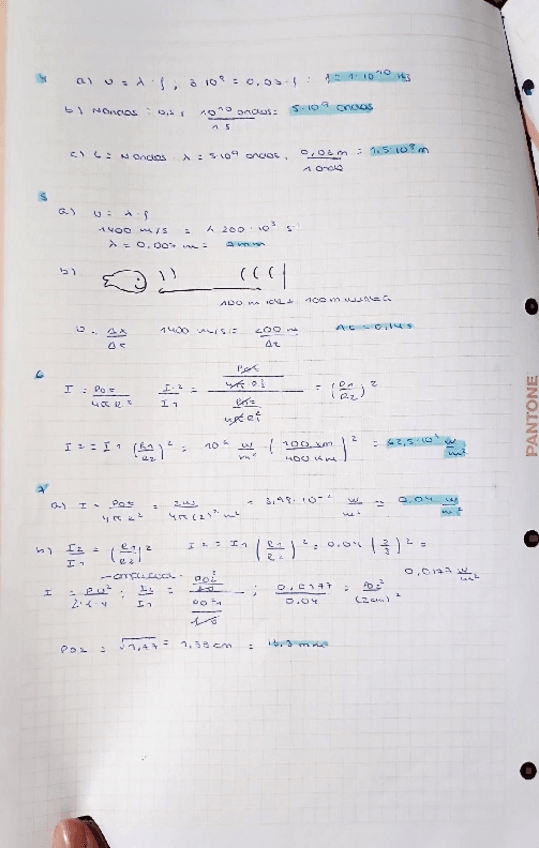 4 a) v = λ · f ; 3·10⁸ = 0,03 · f : f = 1·10¹⁰ Hz
b) N ondas : 0,5 s 10¹⁰ ondas / 1 s = 5·10⁹ ondas
c) L = N ondas · λ = 5·10⁹ ondas · 0,03 m / 1 onda = 1,5·10⁸ m
5
a) v = λ · f
1400 m/s = λ 200·10³ s⁻¹
λ = 0,007 m = 7mm
b)
100 m ida + 100 m vuelta
v = Δx / Δt 1400 m/s = 200 m / Δt Δt = 0,14 s
6
I = Pot / 4π R² I2 / I1 = (Pot / 4π R2²) / (Pot / 4π R1²) = (R1 / R2)²
I2 = I1 (R1 / R2)² = 10² w/m² (100 km / 400 km)² = 62,5·10¹ w/m²
7
a) I = Pot / 4π R² = 2w / 4π (2)² m² = 3,98·10⁻² w/m² = 0,04 w/m²
b) I2 / I1 = (R1 / R2)² I2 = I1 (R1 / R2)² = 0,04 (2/3)² =
0,0177 w/m²
0,0177 / 0,04 = A02² / (2cm)²
A02 = √1,77 = 1,33 cm = 13,3 mm
PANTONE